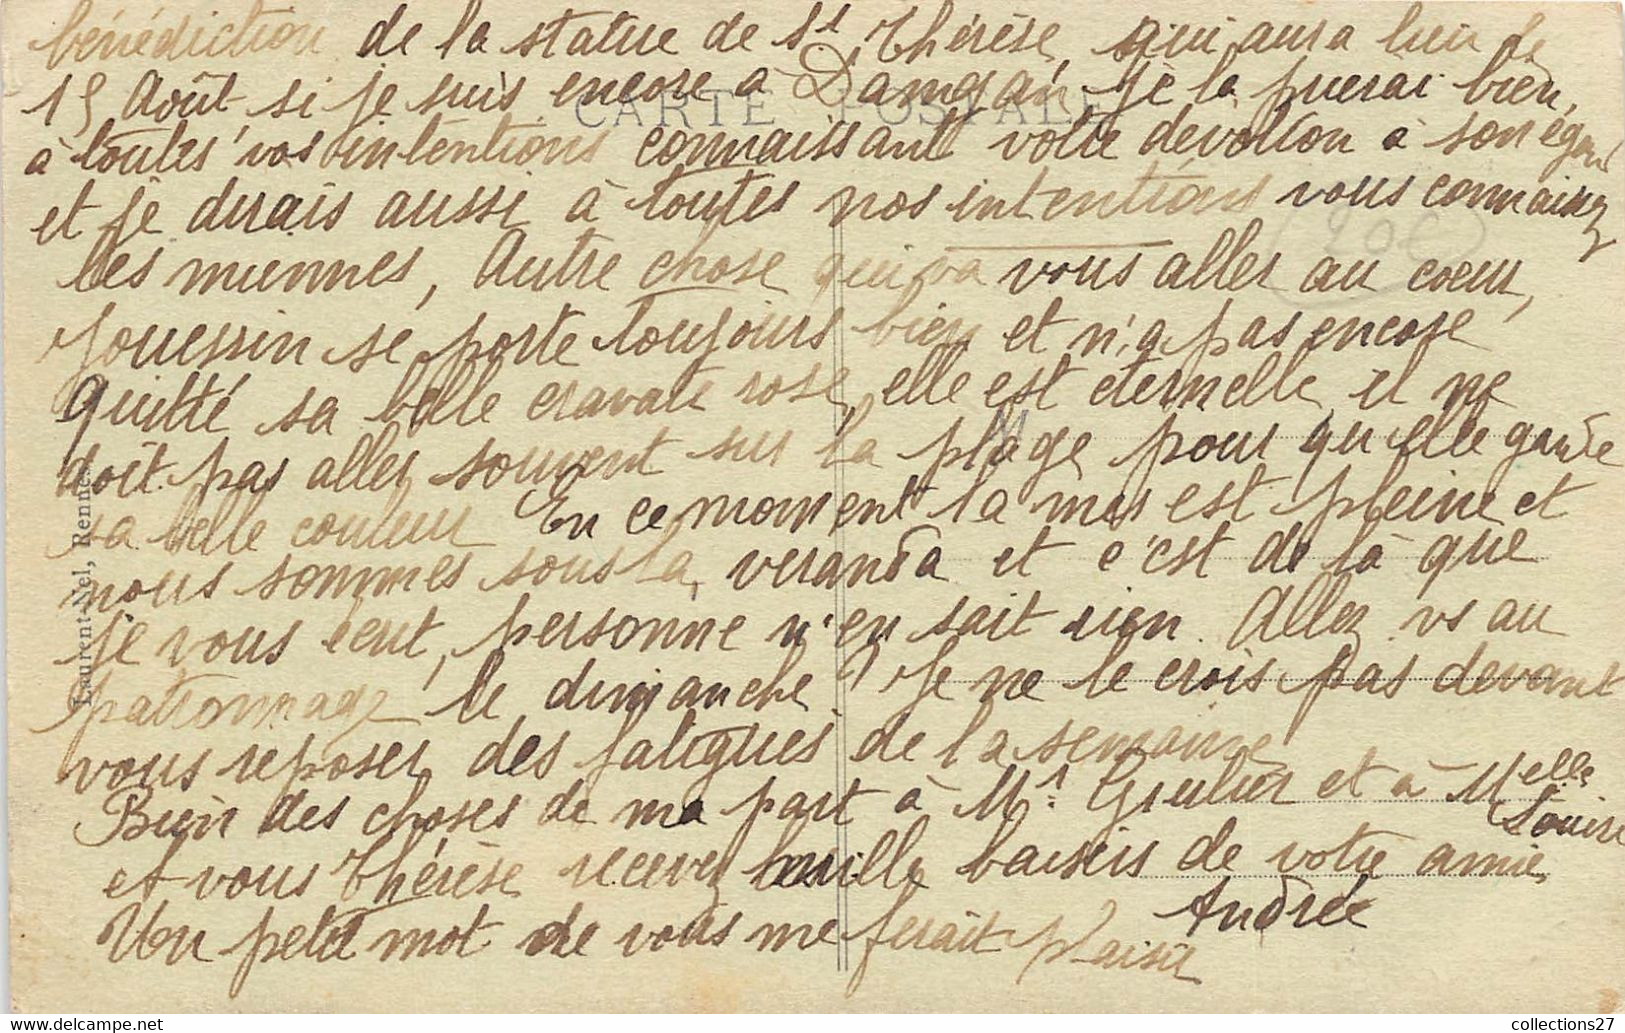 bénédiction de la statue de St Thérèse, qui aura lieu le
15 Août si je suis encore à Damgan je la prierai bien,
à toutes vos intentions connaissant votre devotion à son égard
et je dirais aussi à toutes nos intentions vous connaissez
les miennes, Autre chose qui va vous aller au coeur,
se porte toujours bien et n'a pas encore
quitté sa belle cravate rose, elle est eternelle, il ne
doit pas aller souvent sur la plage pour qu'elle garde
sa belle couleur En ce moment la mer est pleine et
nous sommes sous la veranda et c'est de là que
je vous écrit, personne n'en sait rien. Allez vs au
patronnage le dimanche? Je ne le crois pas devant
vous reposer des fatigues de la semaine
Bien des choses de ma part à Mr. et à Melle Louise
et vous Thérèse recevez mille baisers de votre amie,
Andrée
Un petit mot de vous me ferait plaisir
CARTE POSTALE
Laurent-Nel, Rennes
(20€)
collections27